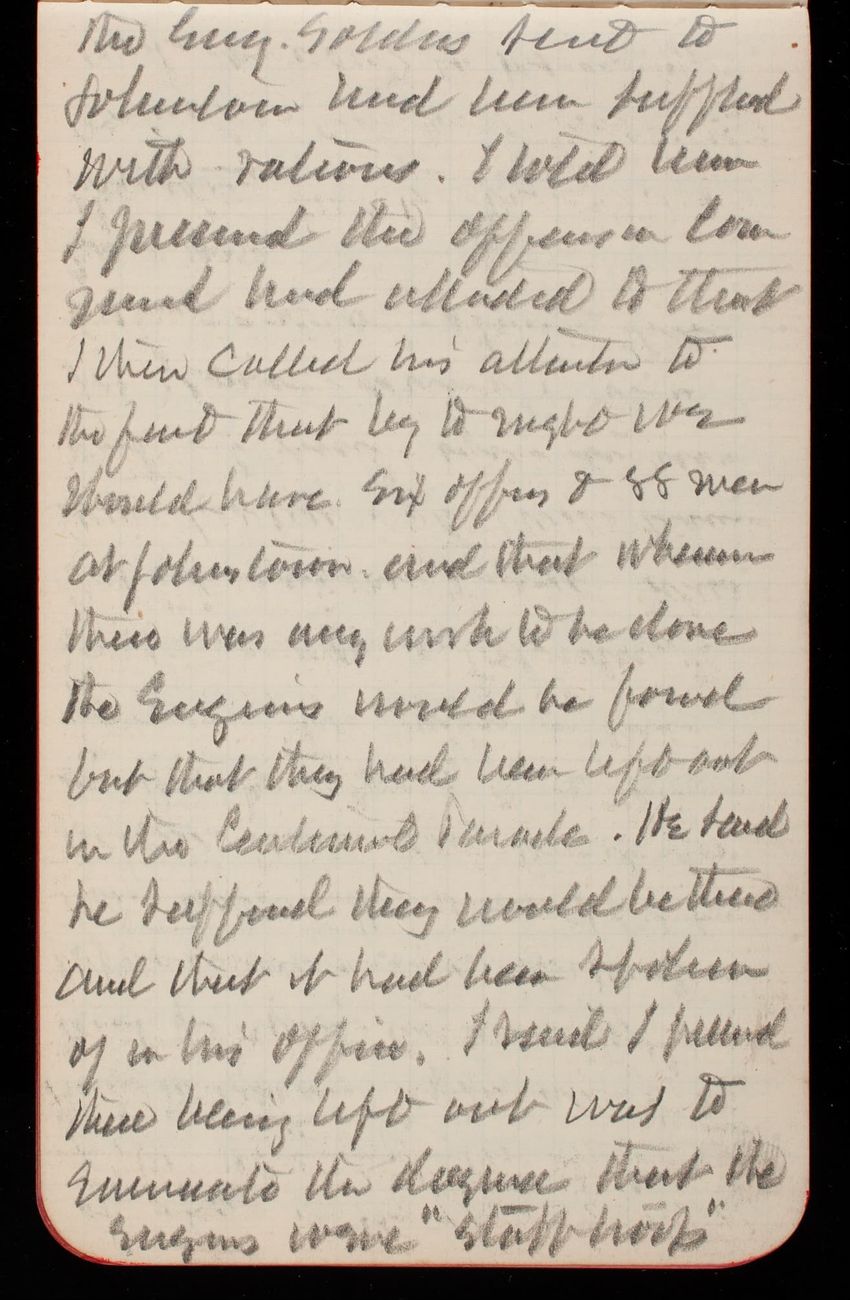 the Eng. Soldiers sent to
Johnstown had been supplied
with rations. I told him
I presumed the officer in Com
mand had attended to that
I then called his attention to
the fact that by to night we
should have six officers & 88 men
at Johnstown. and that whenever
there was any work to be done
the Engineers would be found
but that they had been left out
in the Centennial Parade. He said
he supposed they would be there
and that it had been spoken
of in his office. I said I presumed
their being left out was to
the dogma that the
Engineers were "Staff